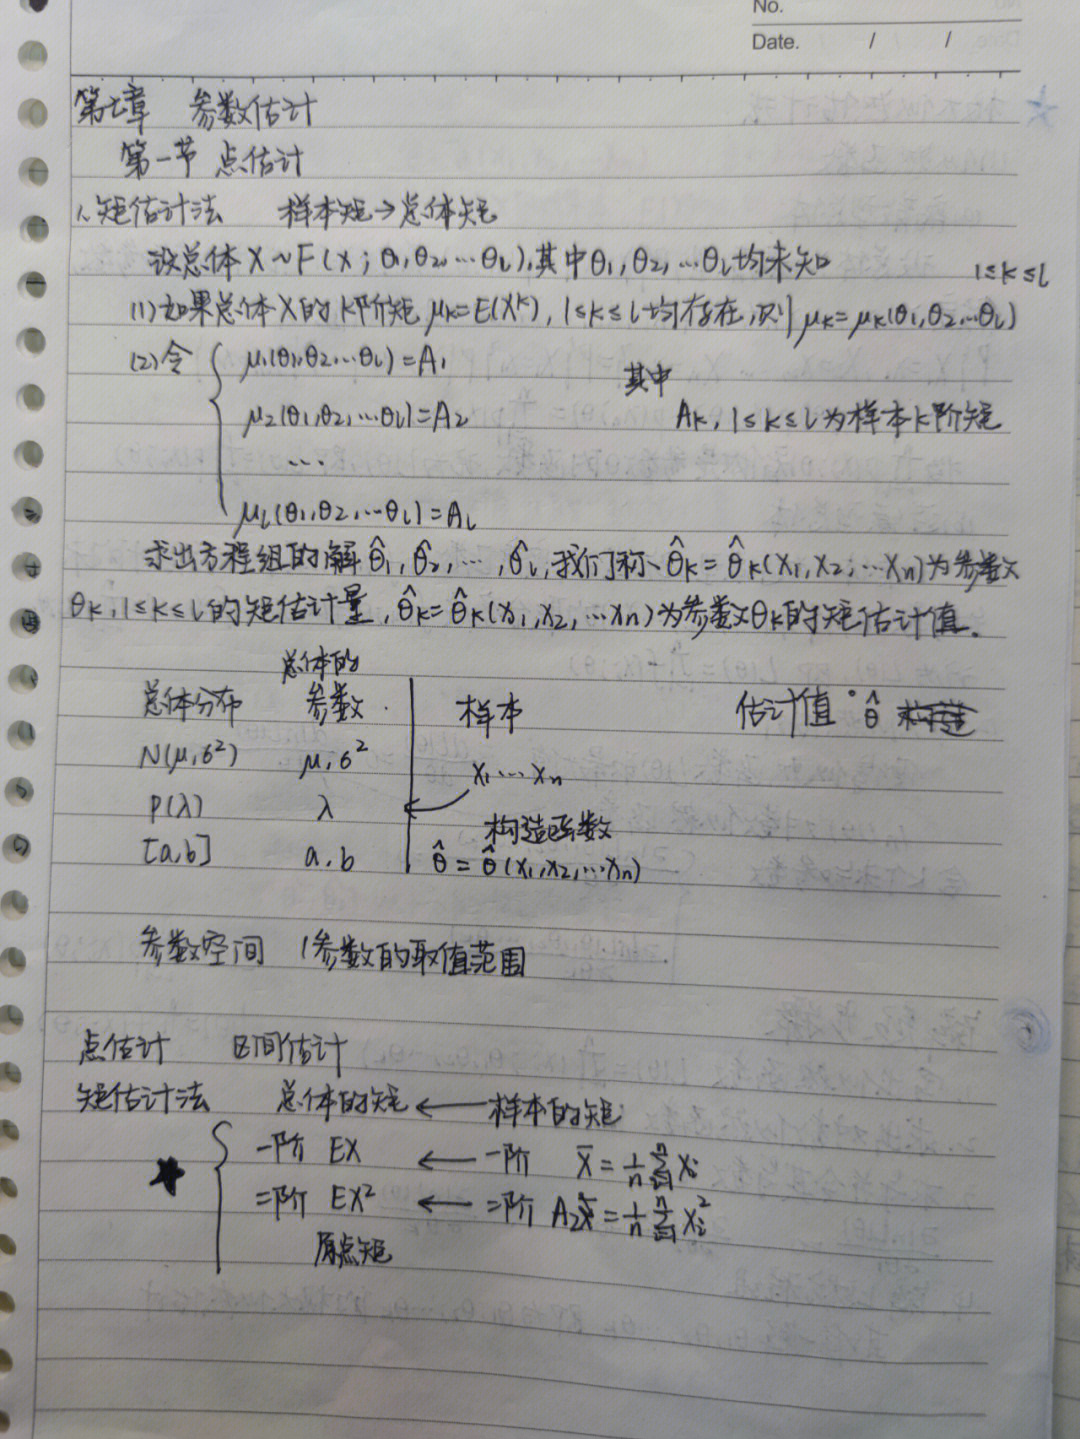 No.
Date. / /
第七章 参数估计
第一节 点估计
1、矩估计法 样本矩→总体矩
设总体X~F(x;θ1,θ2,…θl),其中θ1,θ2,…θl均未知
(1)如果总体X的k阶矩μk=E(X^k),1≤k≤l均存在,则μk=μk(θ1,θ2,…θl) 1≤k≤l
(2)令 { μ1(θ1,θ2…θl)=A1
其中
μ2(θ1,θ2,…θl)=A2 Ak,1≤k≤l为样本k阶矩
…
μl(θ1,θ2,…θl)=Al
求出方程组的解θ̂1,θ̂2,…,θ̂l,我们称、θ̂k=θ̂k(X1,X2,…Xn)为参数
θk,1≤k≤l的矩估计量,θ̂k=θ̂k(x1,x2,…xn)为参数θk的矩估计值.
总体的
总体分布 参数. 样本 估计值 θ̂
N(μ,σ²) μ,σ² X1…Xn
P(λ) λ
构造函数
[a,b] a,b θ̂=θ̂(X1,X2,…Xn)
参数空间 (参数的取值范围
点估计 区间估计
矩估计法 总体的矩←样本的矩
★ { 一阶 EX ← 一阶 X̄=1/n Σⁿᵢ₌₁ Xi
二阶 EX² ← 二阶 A2=1/n Σⁿᵢ₌₁ Xi²
原点矩